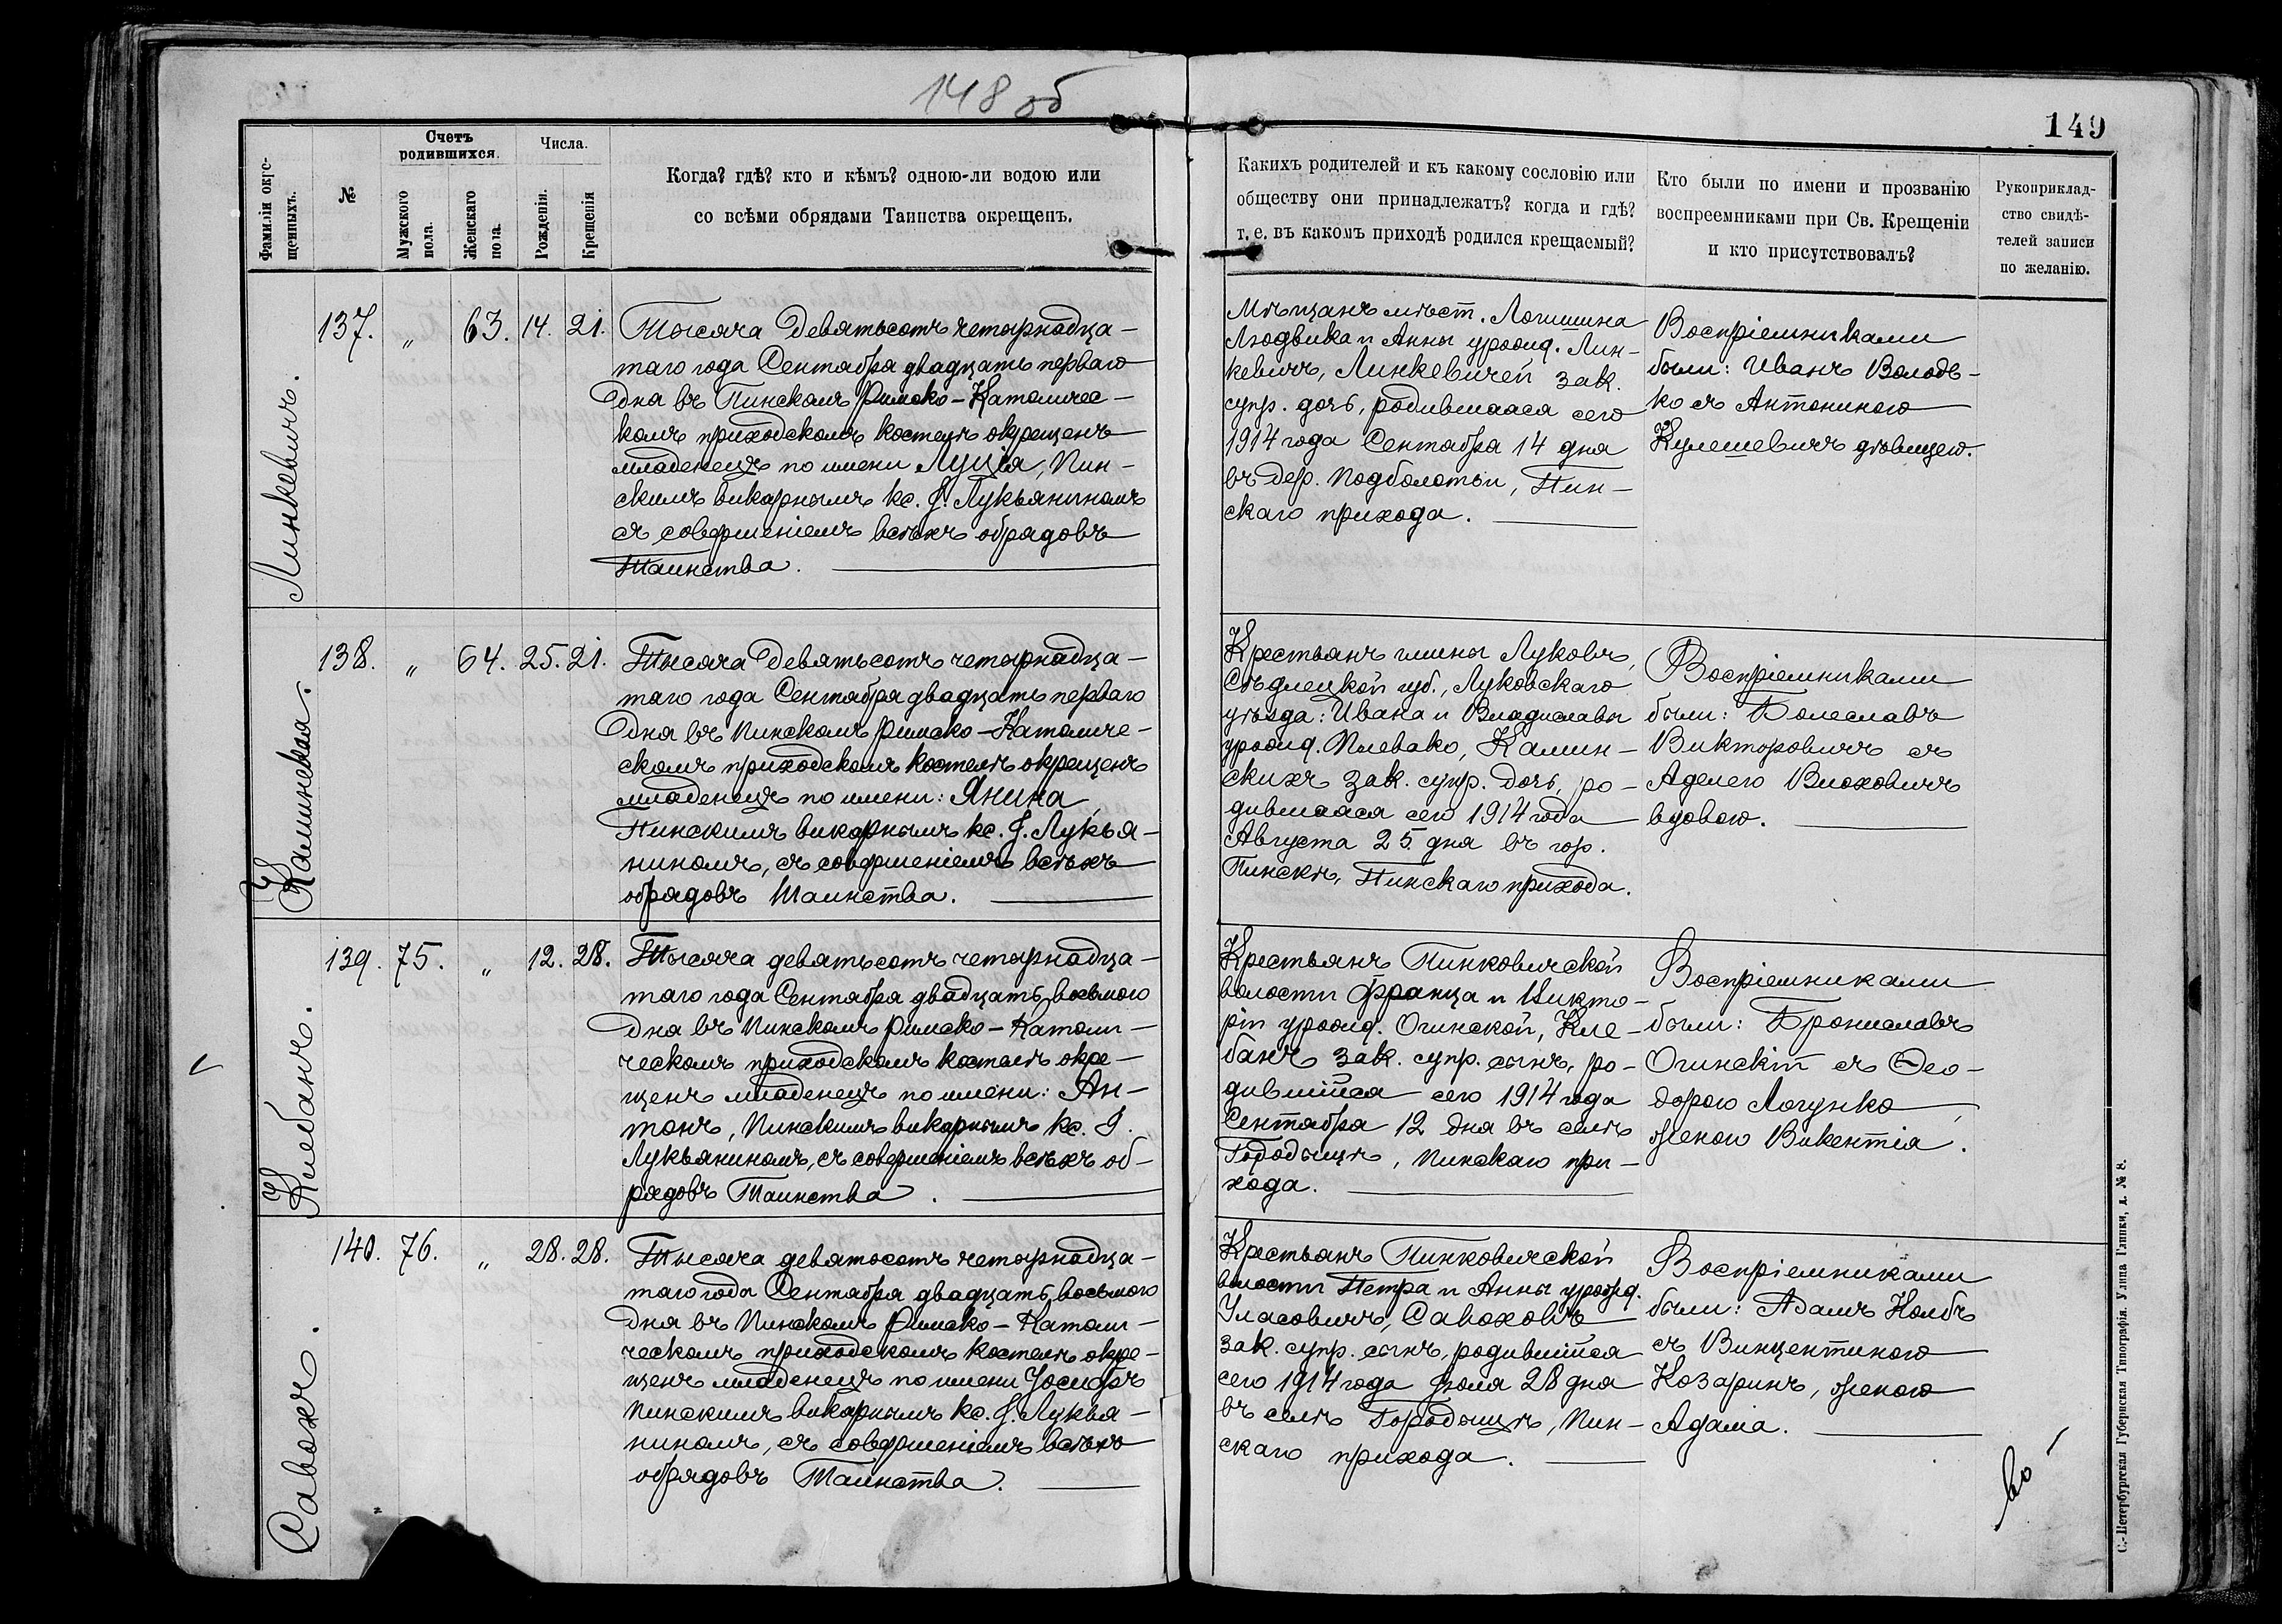 148 об
149
Фамиліи окре-
щенныхъ.
№
Счетъ
родившихся.
Мужского
пола.
Женскаго
пола.
Числа.
Рожденія.
Крещенія
Когда? гдѣ? кто и кѣмъ? одною-ли водою или
со всѣми обрядами Таинства окрещенъ.
Какихъ родителей и къ какому сословію или
обществу они принадлежатъ? когда и гдѣ?
т. е. въ какомъ приходѣ родился крещаемый?
Кто были по имени и прозванію
воспреемниками при Св. Крещеніи
и кто присутствовалъ?
Рукоприклад-
ство свидѣ-
телей записи
по желанію.
Линкевичъ.
137. „ 63. 14. 21.
Тысяча девятьсотъ четырнадца-
таго года Сентября двадцать перваго
дня въ Пинскомъ Римско-Католичес-
комъ приходскомъ костелѣ окрещенъ
младенецъ по имени Луція, Пин-
скимъ викарнымъ кс. І. Лукьяниномъ
съ совершеніемъ всѣхъ обрядовъ
Таинства.
Мѣщанъ мѣст. Логишина
Людвика и Анны урожд. Лин-
кевичъ, Линкевичей зак.
супр. дочь, родившаяся сего
1914 года Сентября 14 дня
въ дер. Подболотьи, Пин-
скаго прихода.
Воспріемниками
были: Иванъ Володь-
ко съ Антониною
Кулешевичъ дѣвицею.
Каминская.
138. „ 64. 25. 21.
Тысяча девятьсотъ четырнадца-
таго года Сентября двадцать перваго
дня въ Пинскомъ Римско-Католиче-
скомъ приходскомъ костелѣ окрещенъ
младенецъ по имени: Янина,
Пинскимъ викарнымъ кс. І. Лукья-
ниномъ, съ совершеніемъ всѣхъ
обрядовъ Таинства.
Крестьянъ гмины Луковъ,
Сѣдлецкой губ., Луковскаго
уѣзда: Ивана и Владиславы
урожд. Плевако, Камин-
скихъ зак. супр. дочь, ро-
дившаяся сего 1914 года
Августа 25 дня въ гор.
Пинскѣ, Пинскаго прихода.
Воспріемниками
были: Болеславъ
Викторовичъ съ
Аделею Влоховичъ
вдовою.
Клебанъ.
139. 75. „ 12. 28.
Тысяча девятьсотъ четырнадца-
таго года Сентября двадцать восьмого
дня въ Пинскомъ Римско-Католи-
ческомъ приходскомъ костелѣ окре-
щенъ младенецъ по имени: Ан-
тонъ, Пинскимъ викарнымъ кс. І.
Лукьяниномъ, съ совершеніемъ всѣхъ об-
рядовъ Таинства.
Крестьянъ Пинковичской
волости Франца и Викто-
ріи урожд. Огинской, Кле-
банъ зак. супр. сынъ, ро-
дившійся сего 1914 года
Сентября 12 дня въ селѣ
Городыщѣ, Пинскаго при-
хода.
Воспріемниками
были: Брониславъ
Огинскій съ Ѳео-
дорою Логунко,
женою Викентія.
Савохъ.
140. 76. „ 28. 28.
Тысяча девятосотъ четырнадца-
таго года Сентября двадцать восьмого
дня въ Пинскомъ Римско-Католи-
ческомъ приходскомъ костелѣ окре-
щенъ младенецъ по имени Іосифъ
Пинскимъ викарнымъ кс. І. Лукья-
ниномъ, съ совершеніемъ всѣхъ
обрядовъ Таинства.
Крестьянъ Пинковичской
волости Петра и Анны урожд.
Уласовичъ, Савоховъ
зак. супр. сынъ, родившійся
сего 1914 года Іюля 28 дня
въ селѣ Городыщѣ, Пин-
скаго прихода.
Воспріемниками
были: Адамъ Колбъ
съ Винцентиною
Козаринъ, женою
Адама.
С.-Петербургская Губернская Типографія. Улица Глинки, д. № 8.